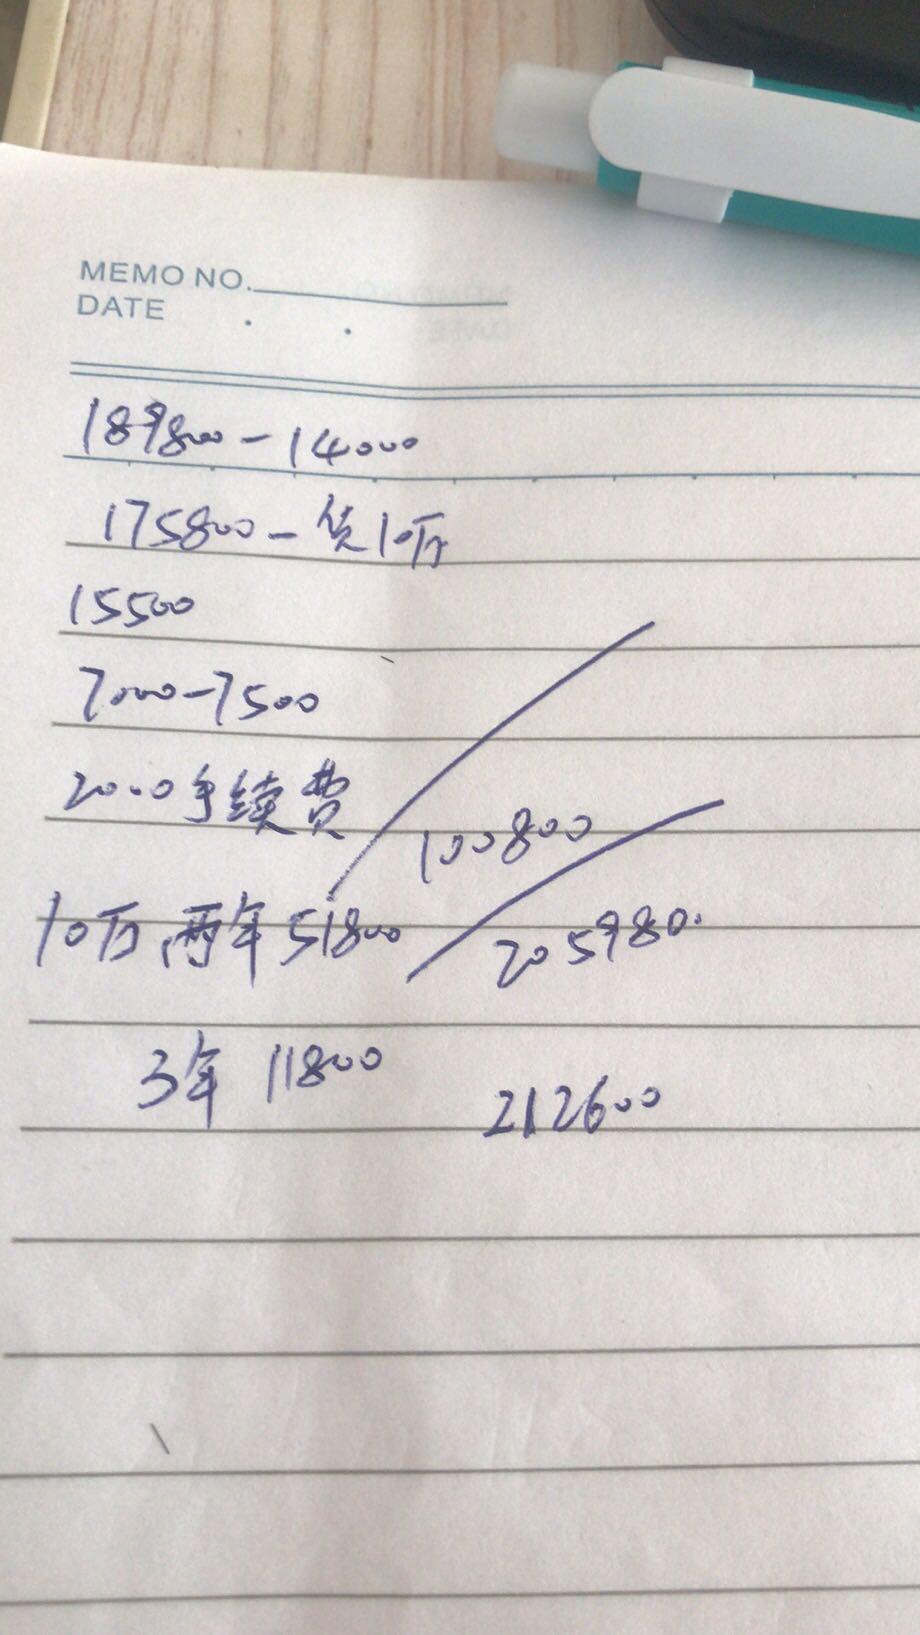 MEMO NO.
DATE . .
189800-14000
175800-贷10万
15500
7000-7500
2000手续费
100800
10万 两年 51800
205980.
3年 11800
212600